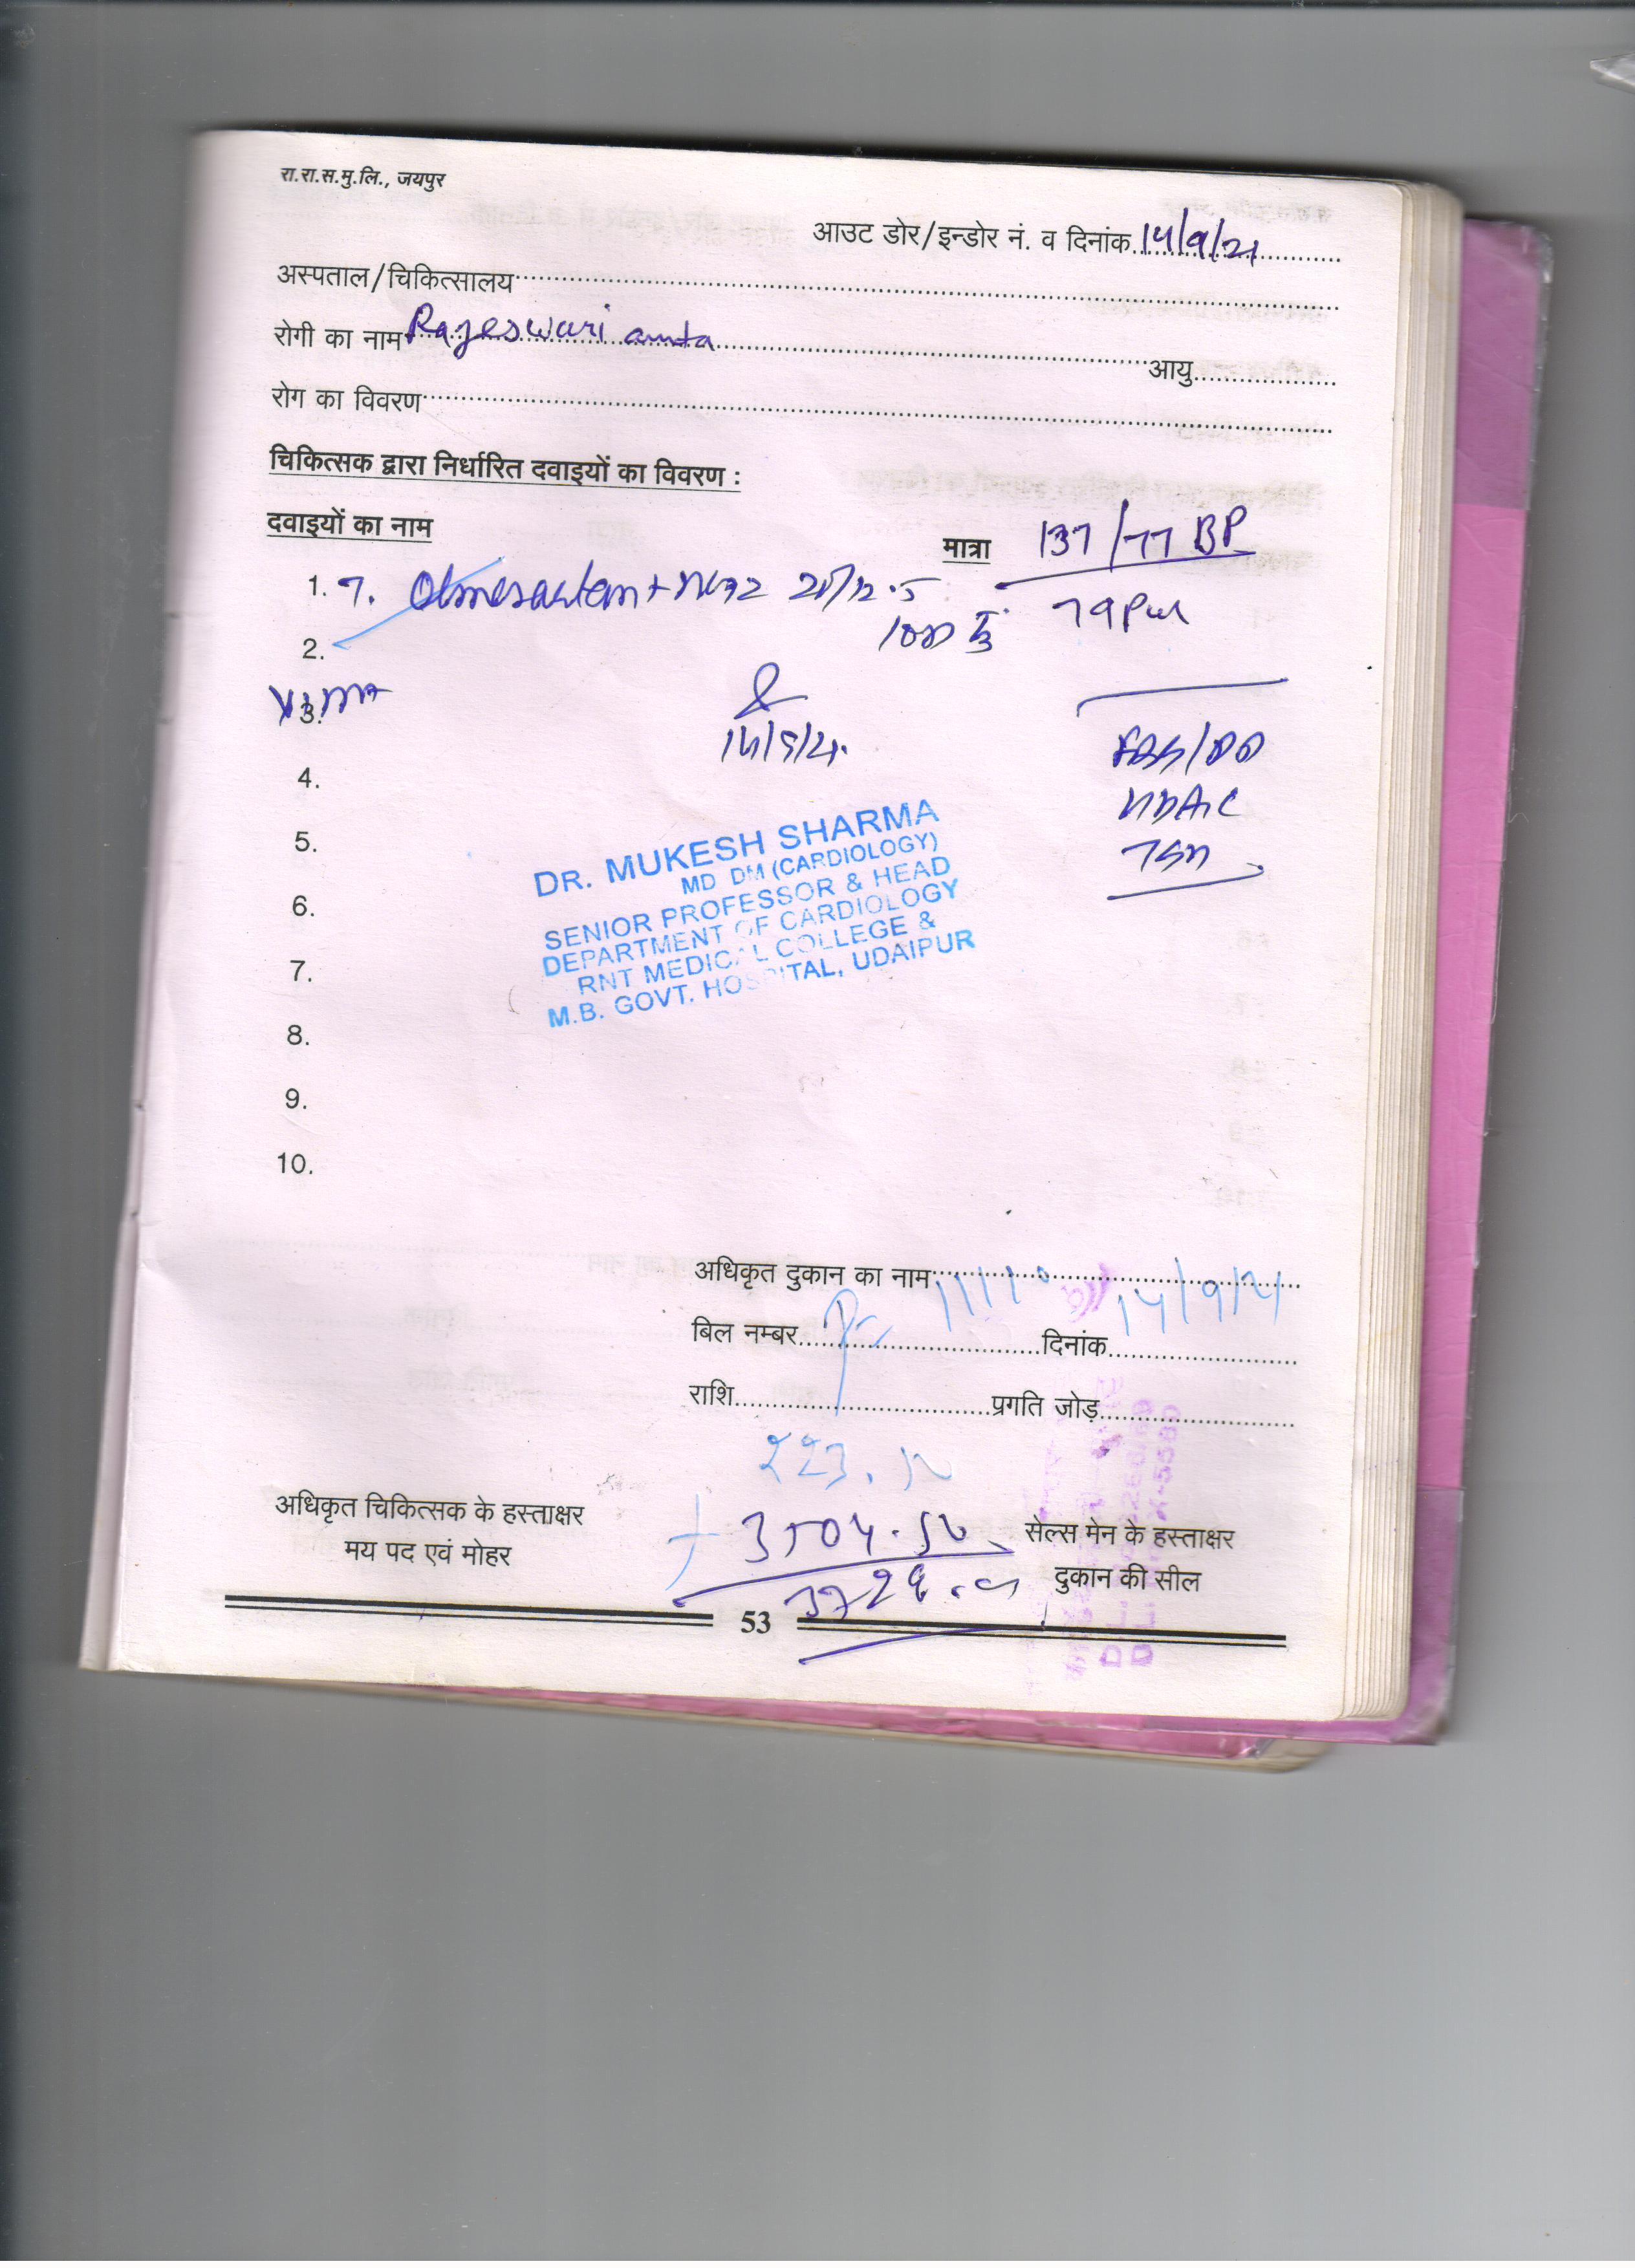 रा.रा.स.मु.लि., जयपुर
आउट डोर/इन्डोर नं. व दिनांक 14/9/21
अस्पताल/चिकित्सालय
रोगी का नाम Rajeswari amta
आयु
रोग का विवरण
चिकित्सक द्वारा निर्धारित दवाइयों का विवरण :
दवाइयों का नाम
मात्रा 137/77 BP
1. T. Olmesartan + 20/12.5
79 Pul
2.
3.
4.
HbA1C
5.
TSH
DR. MUKESH SHARMA
MD DM (CARDIOLOGY)
SENIOR PROFESSOR & HEAD
DEPARTMENT OF CARDIOLOGY
RNT MEDICAL COLLEGE &
M.B. GOVT. HOSPITAL, UDAIPUR
6.
7.
8.
9.
10.
अधिकृत दुकान का नाम
बिल नम्बर
दिनांक 14/9/21
राशि
प्रगति जोड़
223.50
+ 3504.50
अधिकृत चिकित्सक के हस्ताक्षर
मय पद एवं मोहर
सेल्स मेन के हस्ताक्षर
दुकान की सील
53